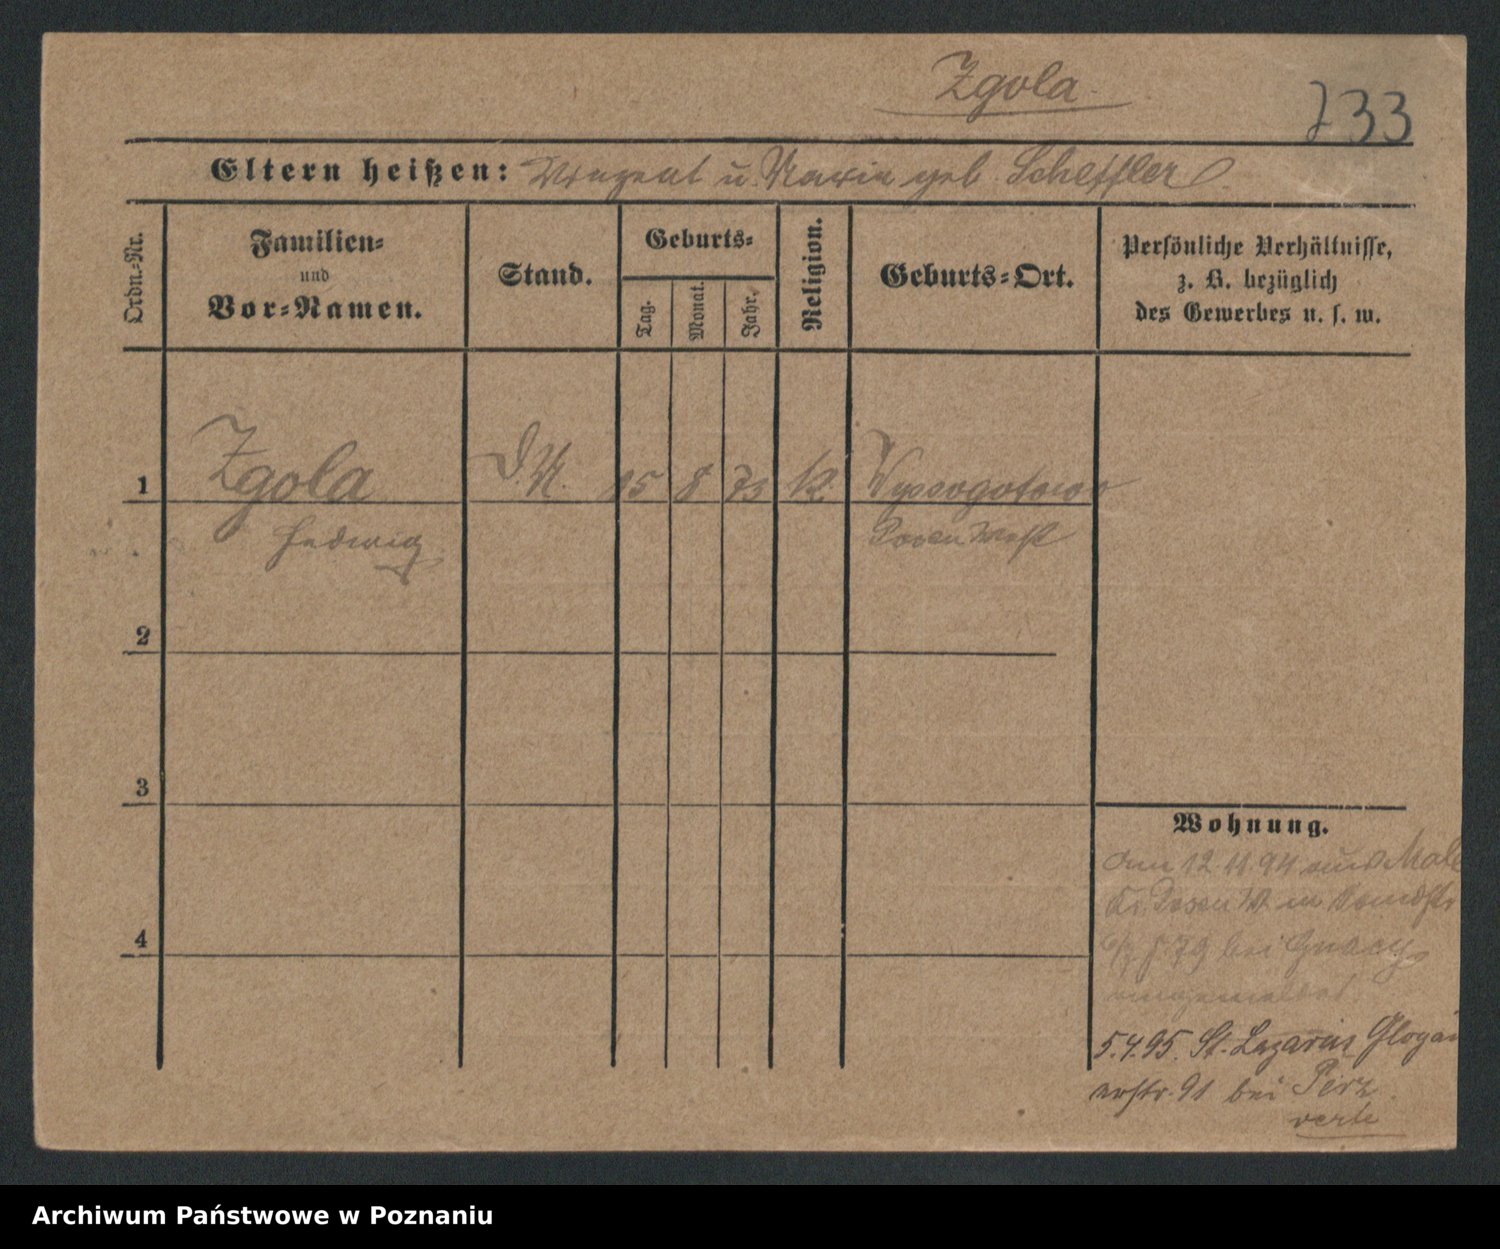 Zgola
733
Eltern heißen: Vinzent u. Maria geb. Scheffler
Ordn.-Nr.
Familien-
und
Vor-Namen.
Stand.
Geburts-
Tag.
Monat.
Jahr.
Religion.
Geburts-Ort.
Persönliche Verhältnisse,
z. B. bezüglich
des Gewerbes u. s. w.
1 Zgola D.M. 15 8 73 K Wyssogotowo
Hedwig Posen West
2
3
4
Wohnung.
Am 12.11.94
Kr. Posen W. in
bei
angemeldet
5.4.95. St. Lazarus Glogau
erstr. 91 bei Perz
verte
Archiwum Państwowe w Poznaniu